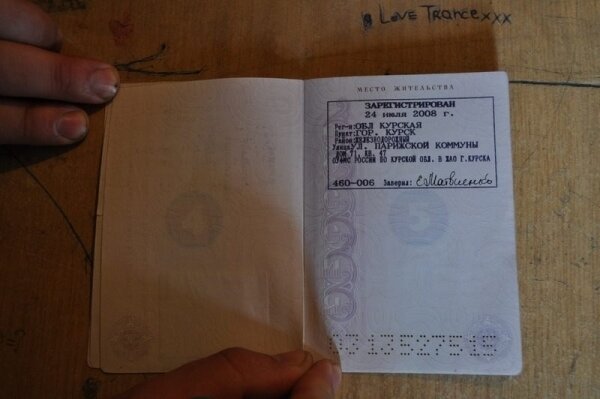 I Love Trancexxx
МЕСТО ЖИТЕЛЬСТВА
ЗАРЕГИСТРИРОВАН
24 июля 2008 г.
Рег-н: ОБЛ КУРСКАЯ
Пункт: ГОР. КУРСК
Район: ЖЕЛЕЗНОДОРОЖНЫЙ
Улица: УЛ. ПАРИЖСКОЙ КОММУНЫ
ДОМ 71, КВ. 47
ОУФМС РОССИИ ПО КУРСКОЙ ОБЛ. В ЖАО Г.КУРСКА
460-006 Заверил:
5